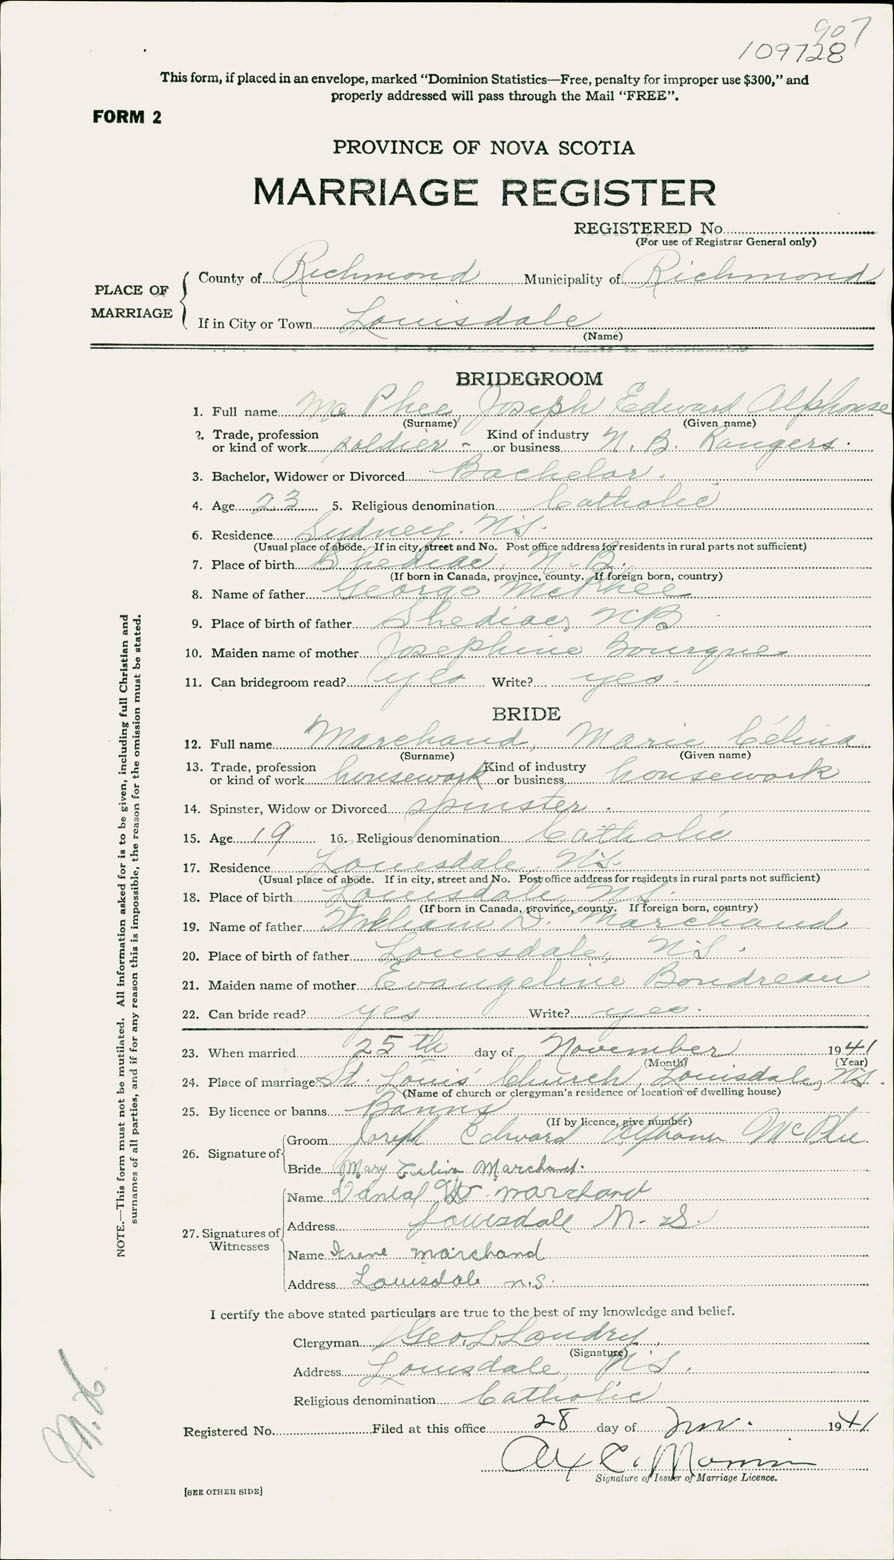 907
109728
This form, if placed in an envelope, marked “Dominion Statistics—Free, penalty for improper use $300,” and
properly addressed will pass through the Mail “FREE”.
FORM 2
PROVINCE OF NOVA SCOTIA
MARRIAGE REGISTER
REGISTERED No.
(For use of Registrar General only)
PLACE OF MARRIAGE
County of Richmond Municipality of Richmond
If in City or Town Louisdale
(Name)
BRIDEGROOM
1. Full name Mc Phee, Joseph Edward Alphonse
(Surname) (Given name)
2. Trade, profession or kind of work soldier - Kind of industry or business N. B. Rangers.
3. Bachelor, Widower or Divorced Bachelor.
4. Age 23 5. Religious denomination Catholic
6. Residence Sydney. N.S.
(Usual place of abode. If in city, street and No. Post office address for residents in rural parts not sufficient)
7. Place of birth Shediac, N. B.
(If born in Canada, province, county. If foreign born, country)
8. Name of father George McPhee
9. Place of birth of father Shediac, NB
10. Maiden name of mother Josephine Bourque
11. Can bridegroom read? yes Write? yes.
BRIDE
12. Full name Marchand, Marie Célina
(Surname) (Given name)
13. Trade, profession or kind of work housework Kind of industry or business housework
14. Spinster, Widow or Divorced spinster.
15. Age 19 16. Religious denomination Catholic
17. Residence Louisdale, N.S.
(Usual place of abode. If in city, street and No. Post office address for residents in rural parts not sufficient)
18. Place of birth Louisdale, N.S.
(If born in Canada, province, county. If foreign born, country)
19. Name of father William D. Marchand
20. Place of birth of father Louisdale, N.S.
21. Maiden name of mother Evangeline Boudreau
22. Can bride read? yes Write? yes.
23. When married 25th day of November 1941
(Month) (Year)
24. Place of marriage St. Louis' Church, Louisdale, N.S.
(Name of church or clergyman's residence or location of dwelling house)
25. By licence or banns Banns
(If by licence, give number)
26. Signature of
Groom Joseph Edward Alphonse McPhee
Bride Mary Celina Marchand.
27. Signatures of Witnesses
Name W. marchand
Address Louisdale N. S.
Name Irene marchand
Address Louisdale n.s.
I certify the above stated particulars are true to the best of my knowledge and belief.
Clergyman Geo. L. Landry
(Signature)
Address Louisdale, N.S.
Religious denomination Catholic
Registered No. Filed at this office 28 day of Nov. 1941
Signature of Issuer of Marriage Licence.
[SEE OTHER SIDE]
NOTE.—This form must not be mutilated. All information asked for is to be given, including full Christian and
surnames of all parties, and if for any reason this is impossible, the reason for the omission must be stated.